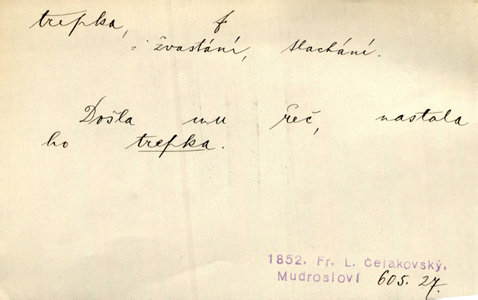 trepka, f
= žvastání, tlachání.
Došla mu řeč, nastala
ho trepka.
1852. Fr. L. Čelakovský,
Mudrosloví 605. 27.